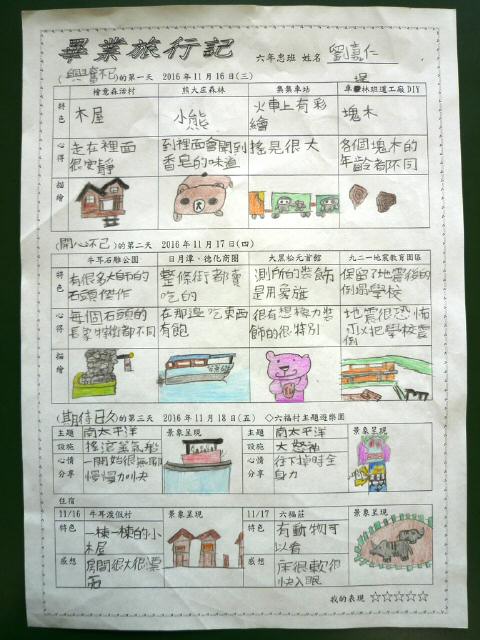 畢業旅行記
六年忠班 姓名 劉嘉仁
(興奮不已)的第一天 2016年11月16日(三)
檜意森活村 熊大庄森林 集集車站 車埕林班道工廠DIY
特色 木屋 小熊 火車上有彩繪 塊木
心得 走在裡面很安靜 到裡面會聞到香皂的味道 搖晃很大 各個塊木的年齡都不同
描繪
(開心不已)的第二天 2016年11月17日(四)
牛耳石雕公園 日月潭、德化商圈 大黑松元首館 九二一地震教育園區
特色 有很多大師的石頭傑作 整條街都賣吃的 測所的裝飾是用象旗 保留了地震後的倒塌學校
心得 每個石頭的長象特徵都不同 在那邊吃東西有飽 很有想極力裝飾的很特別 地震很恐怖可以把學校震倒
描繪
(期待日久)的第三天 2016年11月18日(五) ◇六福村主題遊樂園
主題 南太平洋 景象呈現 主題 南太平洋 景象呈現
設施 設施 大怒神
心情分享 一開始很無聊 心情分享 往下掉時全
住宿
11/16 牛耳渡假村 景象呈現 11/17 六福莊 景象呈現
特色 一棟一棟的小木屋 特色 有動物可以看
感想 房間很大很 感想 床很軟很快入眠
我的表現 ☆☆☆☆☆